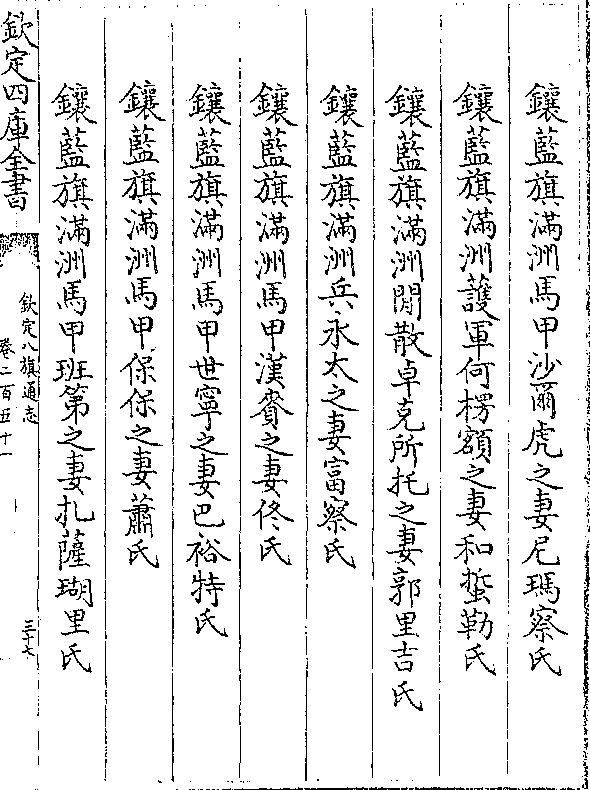 鑲藍旗滿洲馬甲沙爾虎之妻尼瑪察氏
鑲藍旗滿洲護軍何楞額之妻和蜇勒氏
鑲藍旗滿洲閒散卓克所托之妻郭里吉氏
鑲藍旗滿洲兵永太之妻富察氏
鑲藍旗滿洲馬甲漢賚之妻佟氏
鑲藍旗滿洲馬甲世寧之妻巴裕特氏
鑲藍旗滿洲馬甲保保之妻蕭氏
鑲藍旗滿洲馬甲班第之妻扎薩瑚里氏
欽定四庫全書
欽定八旗通志
卷二百五十一
三十七